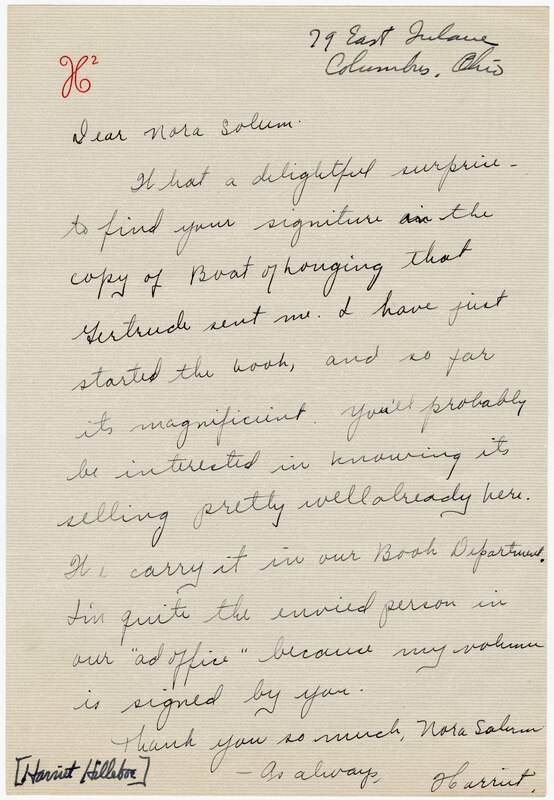 79 East Tulane
Columbus, Ohio
H²
Dear Nora Solum.
What a delightful surprise -
to find your signiture in the
copy of Boat of Longing that
Gertrude sent me. I have just
started the book, and so far
its magnificient. You'll probably
be interested in knowing its
selling pretty well already here.
We carry it in our Book Department.
I'm quite the envied person in
our "ad office" because my volume
is signed by you.
Thank you so much, Nora Solum
- As always,
Harriet.
[Harriet Hilleboe]